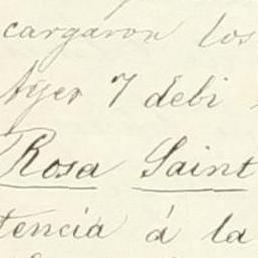 cargaron los
Ayer 7 debi
Rosa Saint
tencia á la